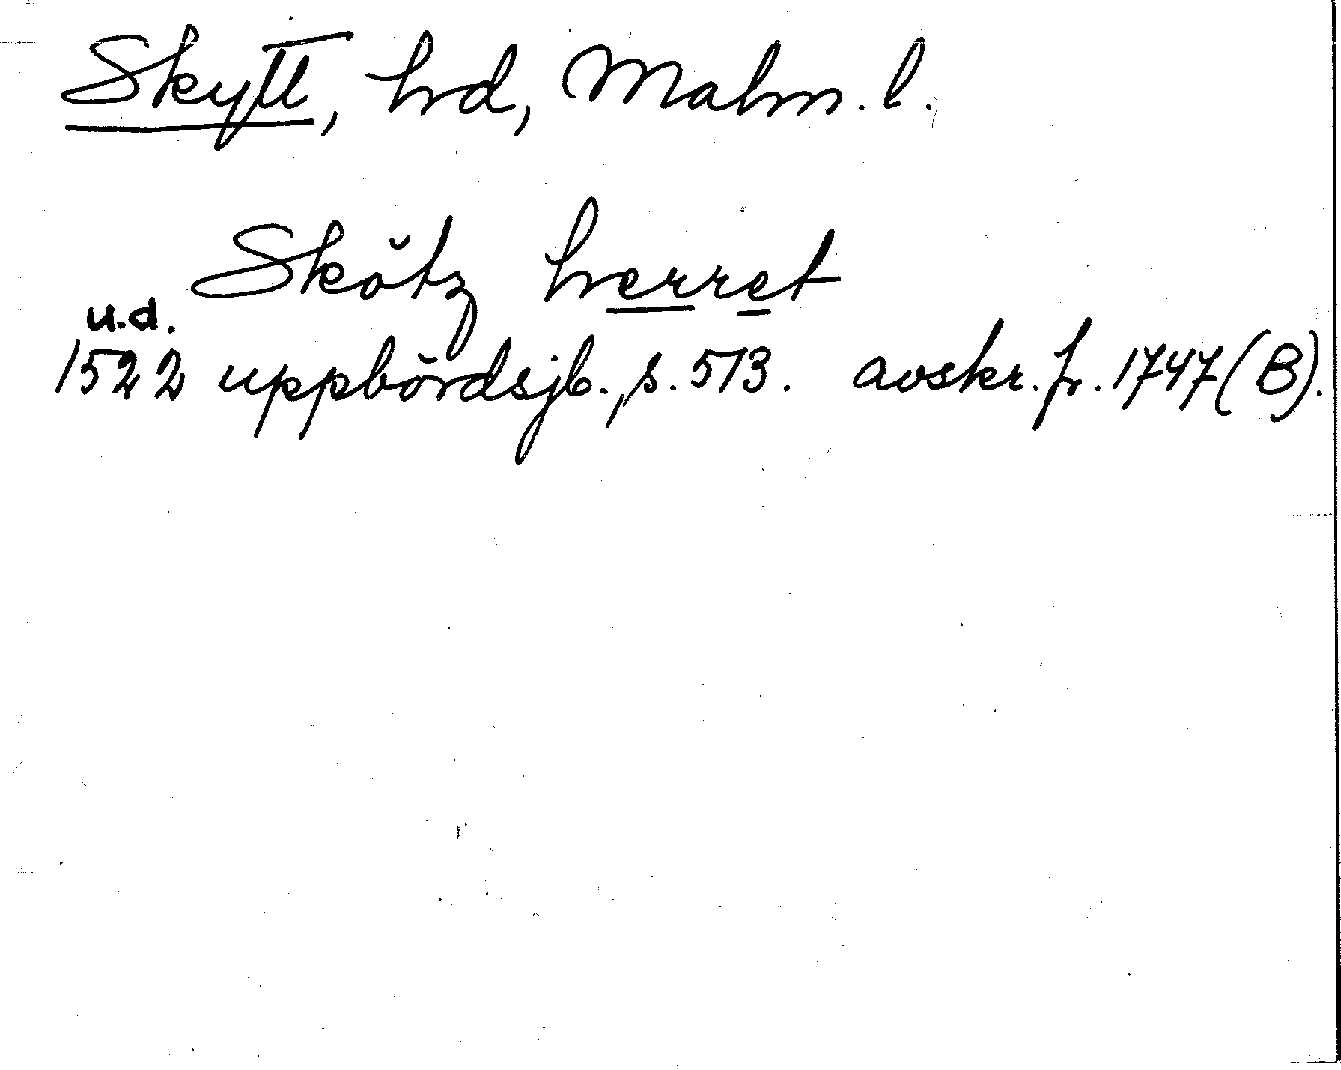 Skytt, hrd, Malm. l.
Skŏtz herret
u.d.
1522 uppbördsjb., s. 513. avskr. fr. 1747 (B).